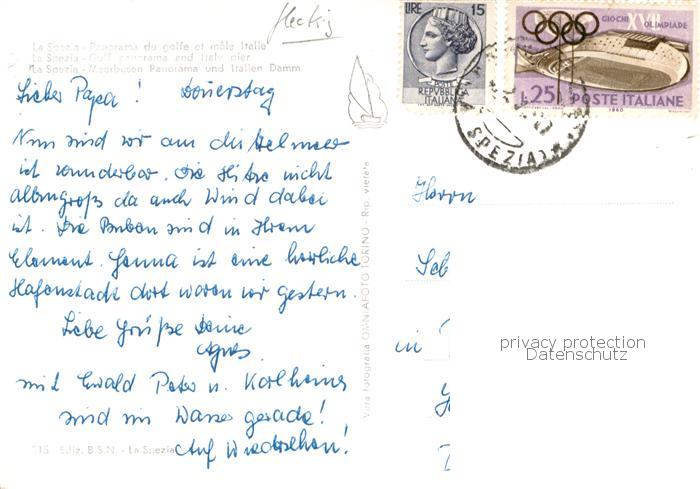 Hectig
La Spezia - Panorama du golfe et môle Italie
La Spezia - Gulf panorama and Italy pier
La Spezia - Meerbusen Panorama und Italien Damm
Lieber Papa! Donnerstag
Nun sind wir am Mittelmeer
ist wunderbar. Die Hitze nicht
allzugroß da auch Wind dabei
ist. Die Buben sind in Ihrem
Element. Genua ist eine herrliche
Hafenstadt dort waren wir gestern.
Liebe Grüße Deine
Agnes
mit Ewald Peter u. Karlheinz
sind im Wasser gerade!
Auf Wiedersehen!
115 Ediz. B.S.N. - La Spezia
Vera fotografia OMNIAFOTO TORINO - Rip. vietata
LIRE 15
REPVBBLICA
ITALIANA
GIOCHI XVII OLIMPIADE
L.25 POSTE ITALIANE
1960
SPEZIA
Herrn
Sch
in
privacy protection
Datenschutz